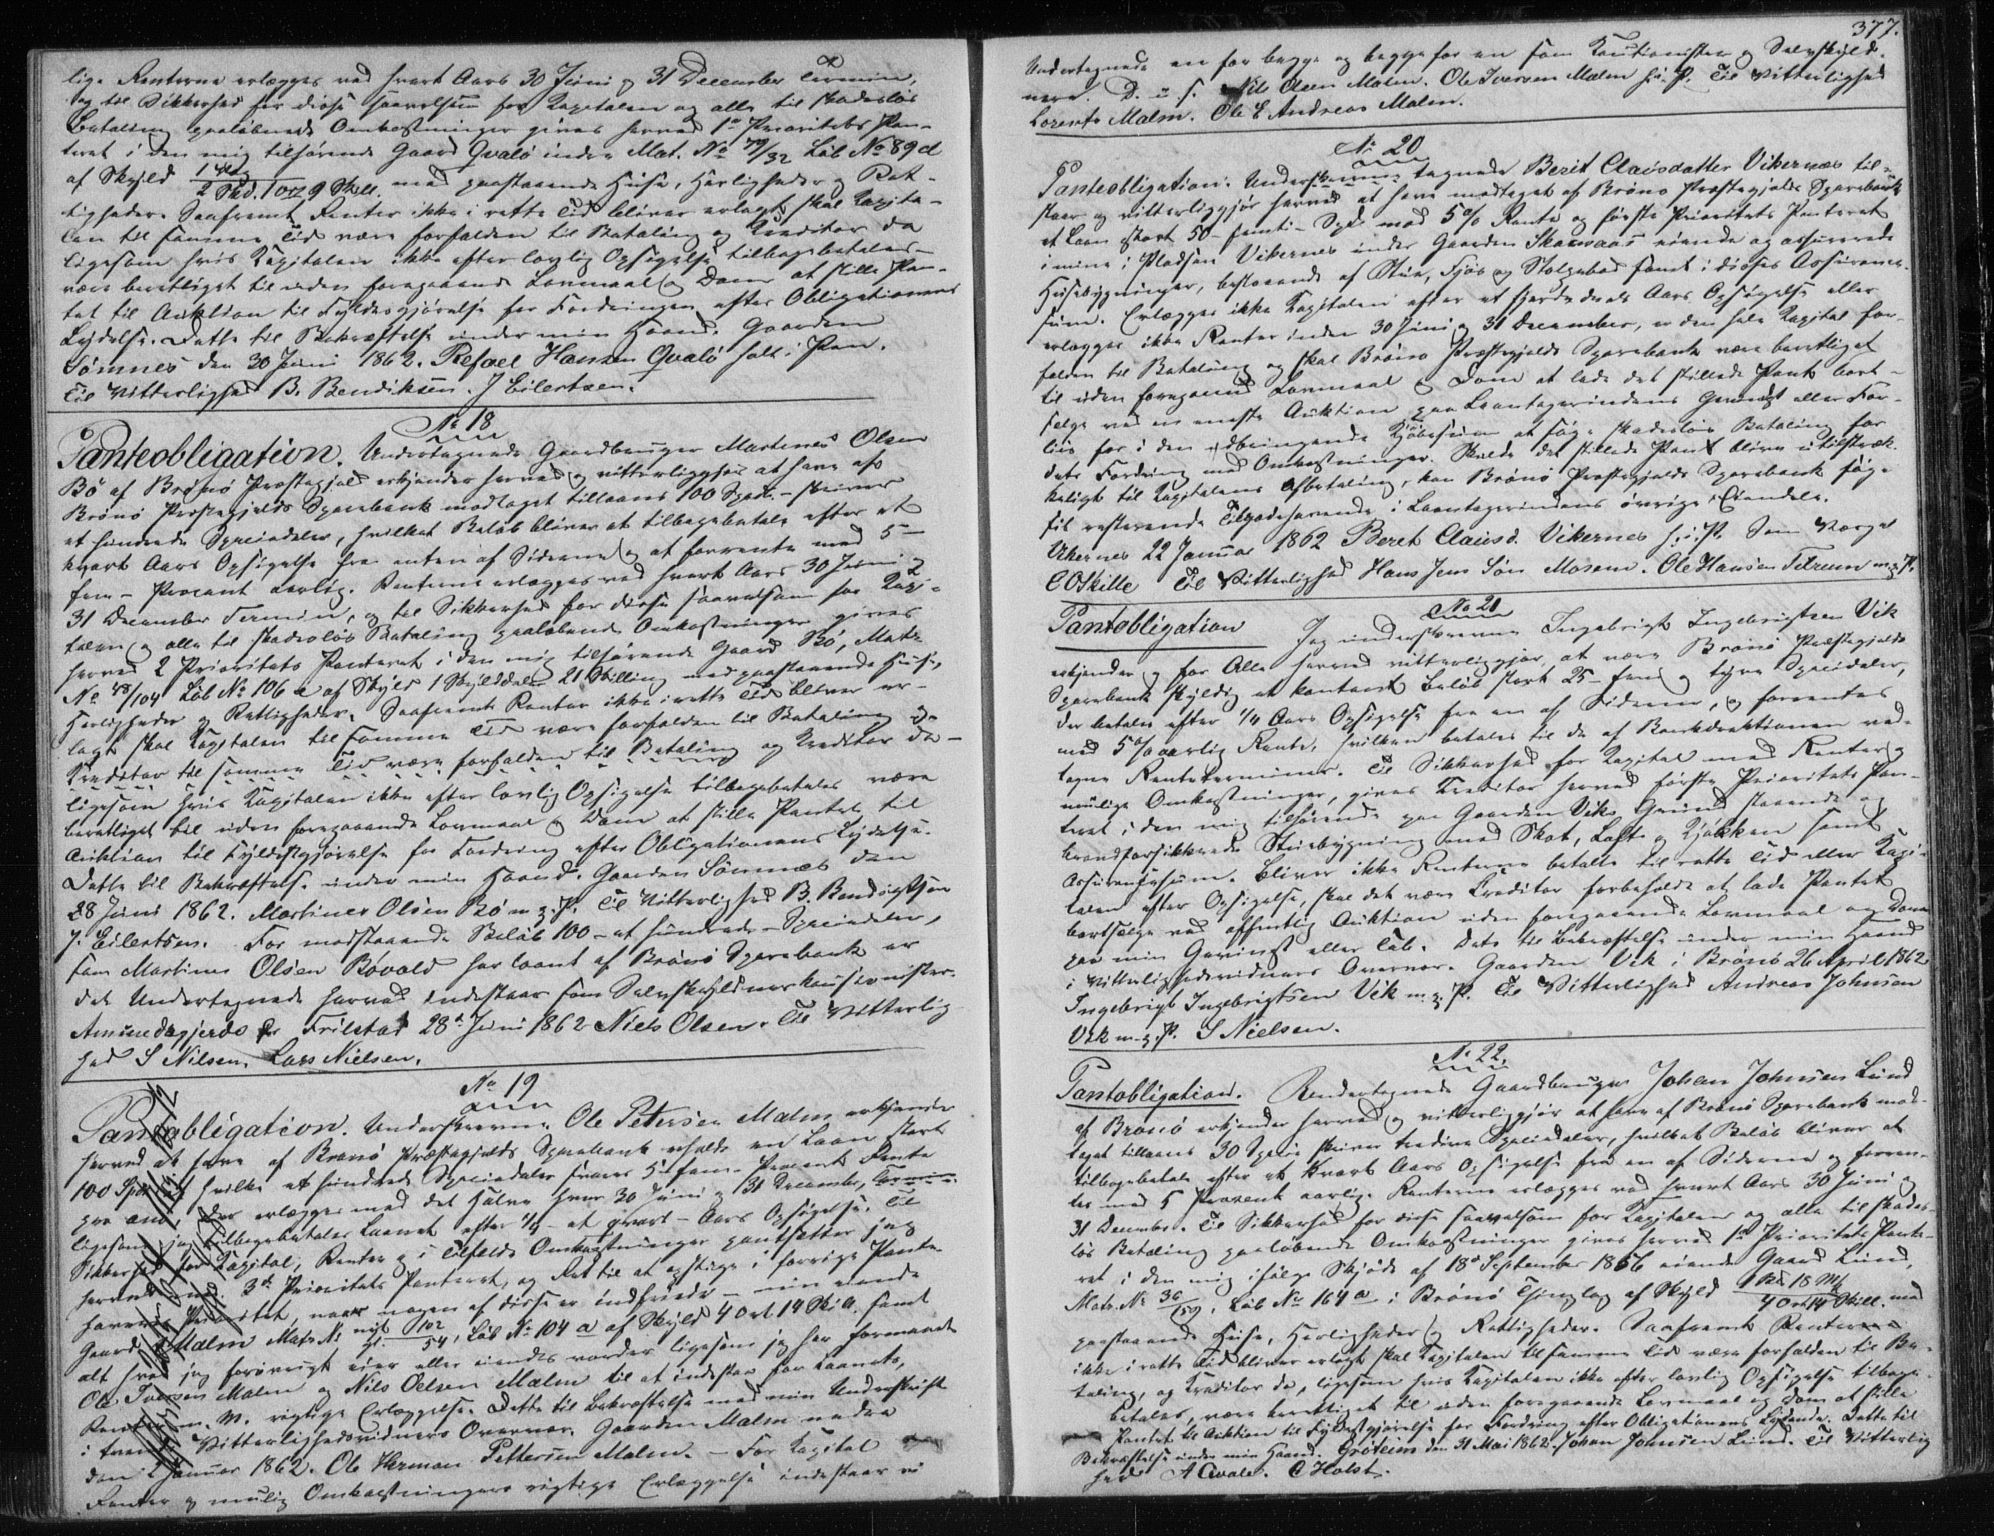 lige Renterne erlægges ved hvert Aars 30 Juni og 31 December Termin,
og til Sikkerhed for disse saavelsom for Kapitalen og alle til skadesløs
Betaling paaløbende Omkostninger gives herved 1ste Prioritets Pan-
teret i den mig tilhørende Gaard Qvalø indre Mat. No 79/32 Løb No 89d
af Skyld 2 Skd. 1 ort 9 Skill. med paastaaende Huse, Herligheder og Ret-
tigheder. Saafremt Renter ikke i rette Tid bliver erlagt, skal Kapita-
len til samme Tid være forfalden til Betaling og Kreditor da
ligesom hvis Kapitalen ikke efter lovlig Opsigelse tilbagebetales
være berettiget til uden foregaaende Lovmaal og Dom at stille Pan-
tet til Auktion til Fyldestgjørelse for Fordringen efter Obligationens
Lydelse. Dette til Bekræftelse under min Haand. Gaarden
Sømnes den 30 Juni 1862. Refael Hansen Qvalø holt i Pen.
Til Vitterlighed B. Bendiksen. J Eilertsen.
No 18
Panteobligation. Undertegnede Gaardbruger Martinus Olsen
Bø af Brønø Præstegjeld erkjender herved og vitterliggjør at have af
Brønø Præstegjelds Sparebank modtaget tillaans 100 Spd. – skriver
et hundrede Speciedaler, hvilket Beløb bliver at tilbagebetale efter et
kvart Aars Opsigelse fra enten af Siderne og at forrente med 5 –
fem – Procent aarlig. Renterne erlægges ved hvert Aars 30 Juni og
31 December Termin, og til Sikkerhed for disse saavelsom for Kapi-
talen og alle til skadesløs Betaling paaløbende Omkostninger gives
herved 2 Prioritets Panteret i den mig tilhørende Gaard Bø, Matr.
No 48/104 Løb No 106 a af Skyld 1 Skylddaler 21 Skilling med paastaaende Huse,
Herligheder og Rettigheder. Saafremt Renter ikke i rette Tid bliver er-
lagt skal Kapitalen til samme Tid være forfalden til Betaling og
Kreditor til samme Tid være forfalden til Betaling og Kreditor da –
ligesom hvis Kapitalen ikke efter lovlig Opsigelse tilbagebetales være
berettiget til uden foregaaende Lovmaal og Dom at stille Pantet til
Auktion til Fyldestgjørelse for Fordring efter Obligationens Lydelse.
Dette til Bekræftelse under min Haand. Gaarden Sømnes den
28 Juni 1862. Martinus Olsen Bø m. p. P. Til Vitterlighed B. Bendigtsen
J. Eilertsen. For modstaaende Beløb 100 – et hundrede – Speciedaler,
som Martinus Olsen Bøvald har laant af Brønø Sparebank er
det Undertegnede herved indestaar som Selvskyldnerkautionister.
Amundsgjerdet pr Frilstad 28de Juni 1862 Niels Olsen. Til Vitterlig
hed S Nilsen, Lars Nielsen.
No 19
Pantobligation. Underskrevne Ole Petersen Malm erkjender
herved at have af Brønø Præstegjelds Sparebank erholdt en Laan stort
100 Spd. hvilke et hundrede Speciedaler svares 5 – fem – Procent Rente
pro anno der erlægges med det Halve hver 30 Juni og 31 December, Termin
ligesom jeg tilbagebetaler Laanet efter 1/4 – et qvart – Aars Opsigelse. Til
Sikkerhed for Kapital, Renter og i Tilfælde Omkostninger pantsætter jeg
herved med 3de Prioritets Panteret, og Ret til at opstige i forrige Pante-
haveres Prioritet, naar nogen af disse er indfriede – min eiende
Gaard Malm Mats No nyt 102 gl. 54, Løb No 104 a af Skyld 4 Ort 14 Skill. samt
alt hvad jeg forøvrigt eier eller eiendes vorder ligesom jeg har formaaet
Ole Iversen Malm og Nils Oelsen Malm til at indestaa for Laanets,
Renternes m. v. rigtige Erlæggelse. Dette til Bekræftelse med min Underskrift
i tvende Vitterlighedsvidners Overvær. Gaarden Malm nedre
den 2 Januar 1862. Ole Herman Pettersen Malm. – For Kapital
Renter og mulig Omkostningers rigtige Erlæggelse indestaar vi
377.
Undertegnede en for begge og begge for en som Kautionister og Selvskyld-
nere. D. u. s. Nils Olsen Malm. Ole Iversen Malm h. i. P. Til Vitterlighed
Lorents Malm. Ole E Andreas Malm.
No 20
Panteobligation. Undertegnede Berit Clausdatter Vikernæs til-
staar og vitterliggjør herved at have modtaget af Brønø Præstegjelds Sparebank
et Laan stort 50 – femti – Spd. mod 5% Rente og første Prioritets Panteret
i mine i Pladsen Vikernes under Gaarden Skarvaas eiende og assurerede
Husebygninger, bestaaende af Stue, Fjøs og Stolpebod samt i disses Assurance-
sum. Erlægges ikke Kapitalen efter et fjerdedeels Aars Opsigelse eller
erlægges ikke Renter inden 30 Juni og 31 December, er den hele Kapital for-
falden til Betaling og skal Brønø Præstegjelds Sparebank være berettiget
til uden foregaaende Lovmaal og Dom at lade det stillede Pant bort-
sælge ved en eneste Auktion paa Laantagerindens Gevinst eller For-
liis for i den udbringende Kjøbesum at søge skadesløs Betaling for
dets Fordring med Omkostninger. Skulde det stillede Pant blive utilstræk-
keligt til Kapitalens Afbetaling, kan Brønø Præstegjelds Sparebank søge
sit resterende Tilgodehavende i Laantagerindens øvrige Eiendele.
Vikernes 22 Januar 1862 Beret Clausd. Vikernes h. i. P. Som Værge
C O Skille Til Vitterlighed Hans Jens Søn Mosem. Ole Hansen Tilrem m. p. P.
No 21
Pantobligation Jeg underskrevne Ingebrigt Ingebrigtsen Vik
erkjender og for Alle herved vitterliggjør, at være Brønø Præstegjelds
Sparebank skyldig et kontant Beløb stort 25 – fem og tyve Speciedaler,
der betales efter 1/4 Aars Opsigelse fra en af Siderne, og forrentes
med 5% aarlig Rente, hvilken betales til de af Bankdirektionen ved-
tagne Renteterminer. Til Sikkerhed for Kapital med Renter og
mulige Omkostninger, gives Kreditor herved første Prioritets Pan-
teret i den mig tilhørende paa Gaarden Viks Grund staaende og
brandforsikkrede Stuebygning med Skot, Loft og Kjøkken samt
Assurancesum. Bliver ikke Renterne betalte til rette Tid eller Kapi-
talen efter Opsigelse, skal det være Creditor forbeholdt at lade Pantet
bortsælge ved offentlig Auktion uden foregaaende Lovmaal og Dom
paa min Gevinst eller Tab. Dets til Bekræftelse under min Haand
i Vitterlighedsvidners Overvær. Gaarden Vik i Brønø 26 April 1862
Ingebrigt Ingebrigtsen Vik m. p. P. Til Vitterlighed Andreas Johnsen
Vik m. p. P. S Nielsen.
No 22.
Pantobligation. Undertegnede Gaardbruger Johan Johnsen Lund
af Brønø erkjender herved og vitterliggjør at have af Brønø Sparebank mod-
taget tillaans 30 Spd. skriver tredive Speciedaler, hvilket Beløb bliver at
tilbagebetale efter et Kvart Aars Opsigelse fra en af Siderne og forren-
tes med 5 Prosent aarlig. Renterne erlægges ved hvert Aars 30 Juni og
31 December. Til Sikkerhed for disse saavelsom for Kapitalen og alle til skades-
løs Betaling paaløbende Omkostninger gives herved 1ste Prioritets Pante-
ret i den mig ifølge Skjøde af 18de September 1856 eiende Gaard Lund,
Mats. No 36/159, Løb No 164 a i Brønø Thinglag af Skyld 1 Pd 18 Mk 4 Ort 14 Skill. med
paastaaende Huse, Herligheder og Rettigheder. Saafremt Renterne
ikke i rette Tid bliver erlagt skal Kapitalen til samme Tid være forfalden til Be-
taling, og Kreditor da, ligesom hvis Kapitalen ikke efter lovlig Opsigelse tilbage-
betales, være berettiget til uden foregaaende Lovmaal og Dom at stille
Pantet til Auktion til Fyldestgjørelse for Fordring efter Obligationens Lydende. Dette til
Bekræftelse under min Haand. Grøteim den 31 Mai 1862. Johan Johnsen Lund. Til Vitterlig
hed A Qvale. C Holst.